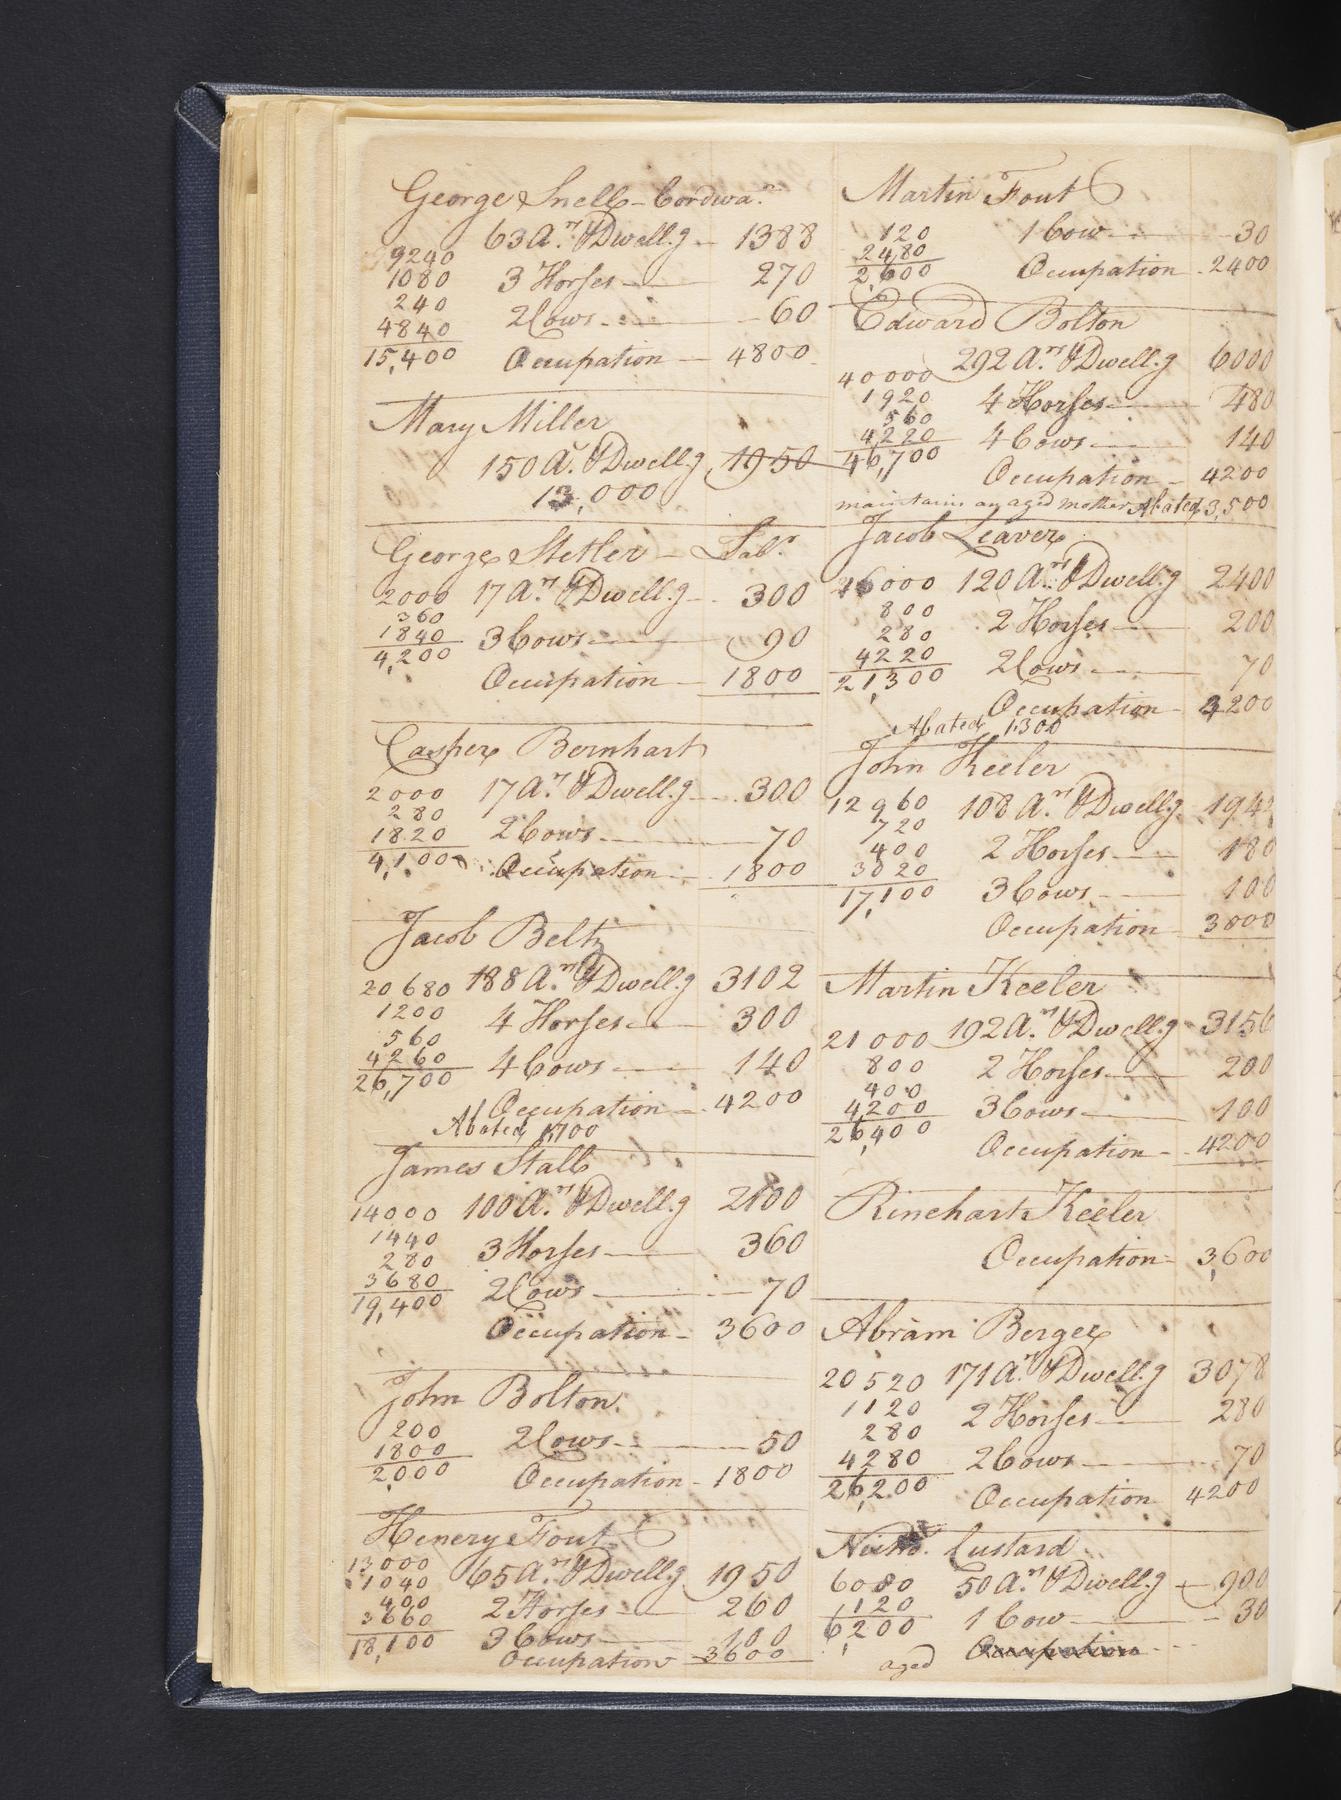 George Snell - Cordwa.r
63 A.rs & Dwell.g - 1388
9240
1080 3 Horses - 270
240
4840 2 Cows - 60
15,400 Occupation - 4800
Mary Miller
150 A.s & Dwell.g 1950
13,000
George Stetler - Lab.r
2000 17 A.rs & Dwell.g - 300
360
1840 3 Cows - 90
4,200
Occupation - 1800
Casper Bernhart
2000 17 A.rs & Dwell.g - 300
280
1820 2 Cows - 70
4,100 Occupation - 1800
Jacob Beltz
20680 188 A.rs & Dwell.g 3102
1200 4 Horses - 300
560
4260 4 Cows - 140
26,700
Occupation - 4200
Abated 1700
James Stall
14000 100 A.rs & Dwell.g 2100
1440
280 3 Horses - 360
3680 2 Cows - 70
19,400
Occupation - 3600
John Bolton.
200 2 Cows - 50
1800
2,000 Occupation - 1800
Henery Fout
13000
1040 65 A.rs & Dwell.g 1950
400
3660 2 Horses - 260
18,100 3 Cows - 100
Occupation - 3600
Martin Fout
120 1 Cow - 30
2480
2,600 Occupation - 2400
Edward Bolton
292 A.rs & Dwell.g 6000
40000
1920 4 Horses - 480
560
4220 4 Cows - 140
46,700
Occupation - 4200
maintains an aged mother Abated 3,500
Jacob Leaver
16000 120 A.rs & Dwell.g 2400
800
280 2 Horses - 200
4220 2 Cows - 70
21,300
Occupation - 4200
Abated 1300
John Keeler
12960 108 A.rs & Dwell.g 194
720
400 2 Horses - 180
3020
17,100 3 Cows - 100
Occupation - 3000
Martin Keeler
21000 192 A.rs & Dwell.g - 3156
800 2 Horses - 200
400
4200 3 Cows - 100
26,400
Occupation - 4200
Rinehart Keeler
Occupation - 3,600
Abram Berger
20520 171 A.rs & Dwell.g 3078
1120 2 Horses - 280
280
4280 2 Cows - 70
26,200
Occupation 4200
Custard
6080 50 A.rs & Dwell.g - 900
120
6,200 1 Cow - 30
aged Occupation